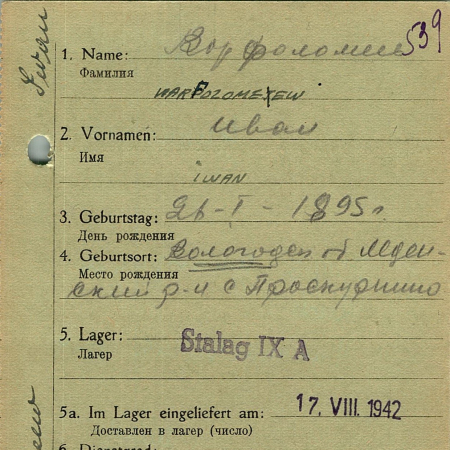 539
1. Name: Варфоломеев
Фамилия
WARFOLOMEJEW
2. Vornamen: Иван
Имя
IWAN
3. Geburtstag: 26-I-1895 г.
День рождения
4. Geburtsort: Вологодск об Мден-
Место рождения
ский р-н с Проскурнино
5. Lager: Stalag IX A
Лагер
5a. Im Lager eingeliefert am: 17. VIII. 1942
Доставлен в лагер (число)